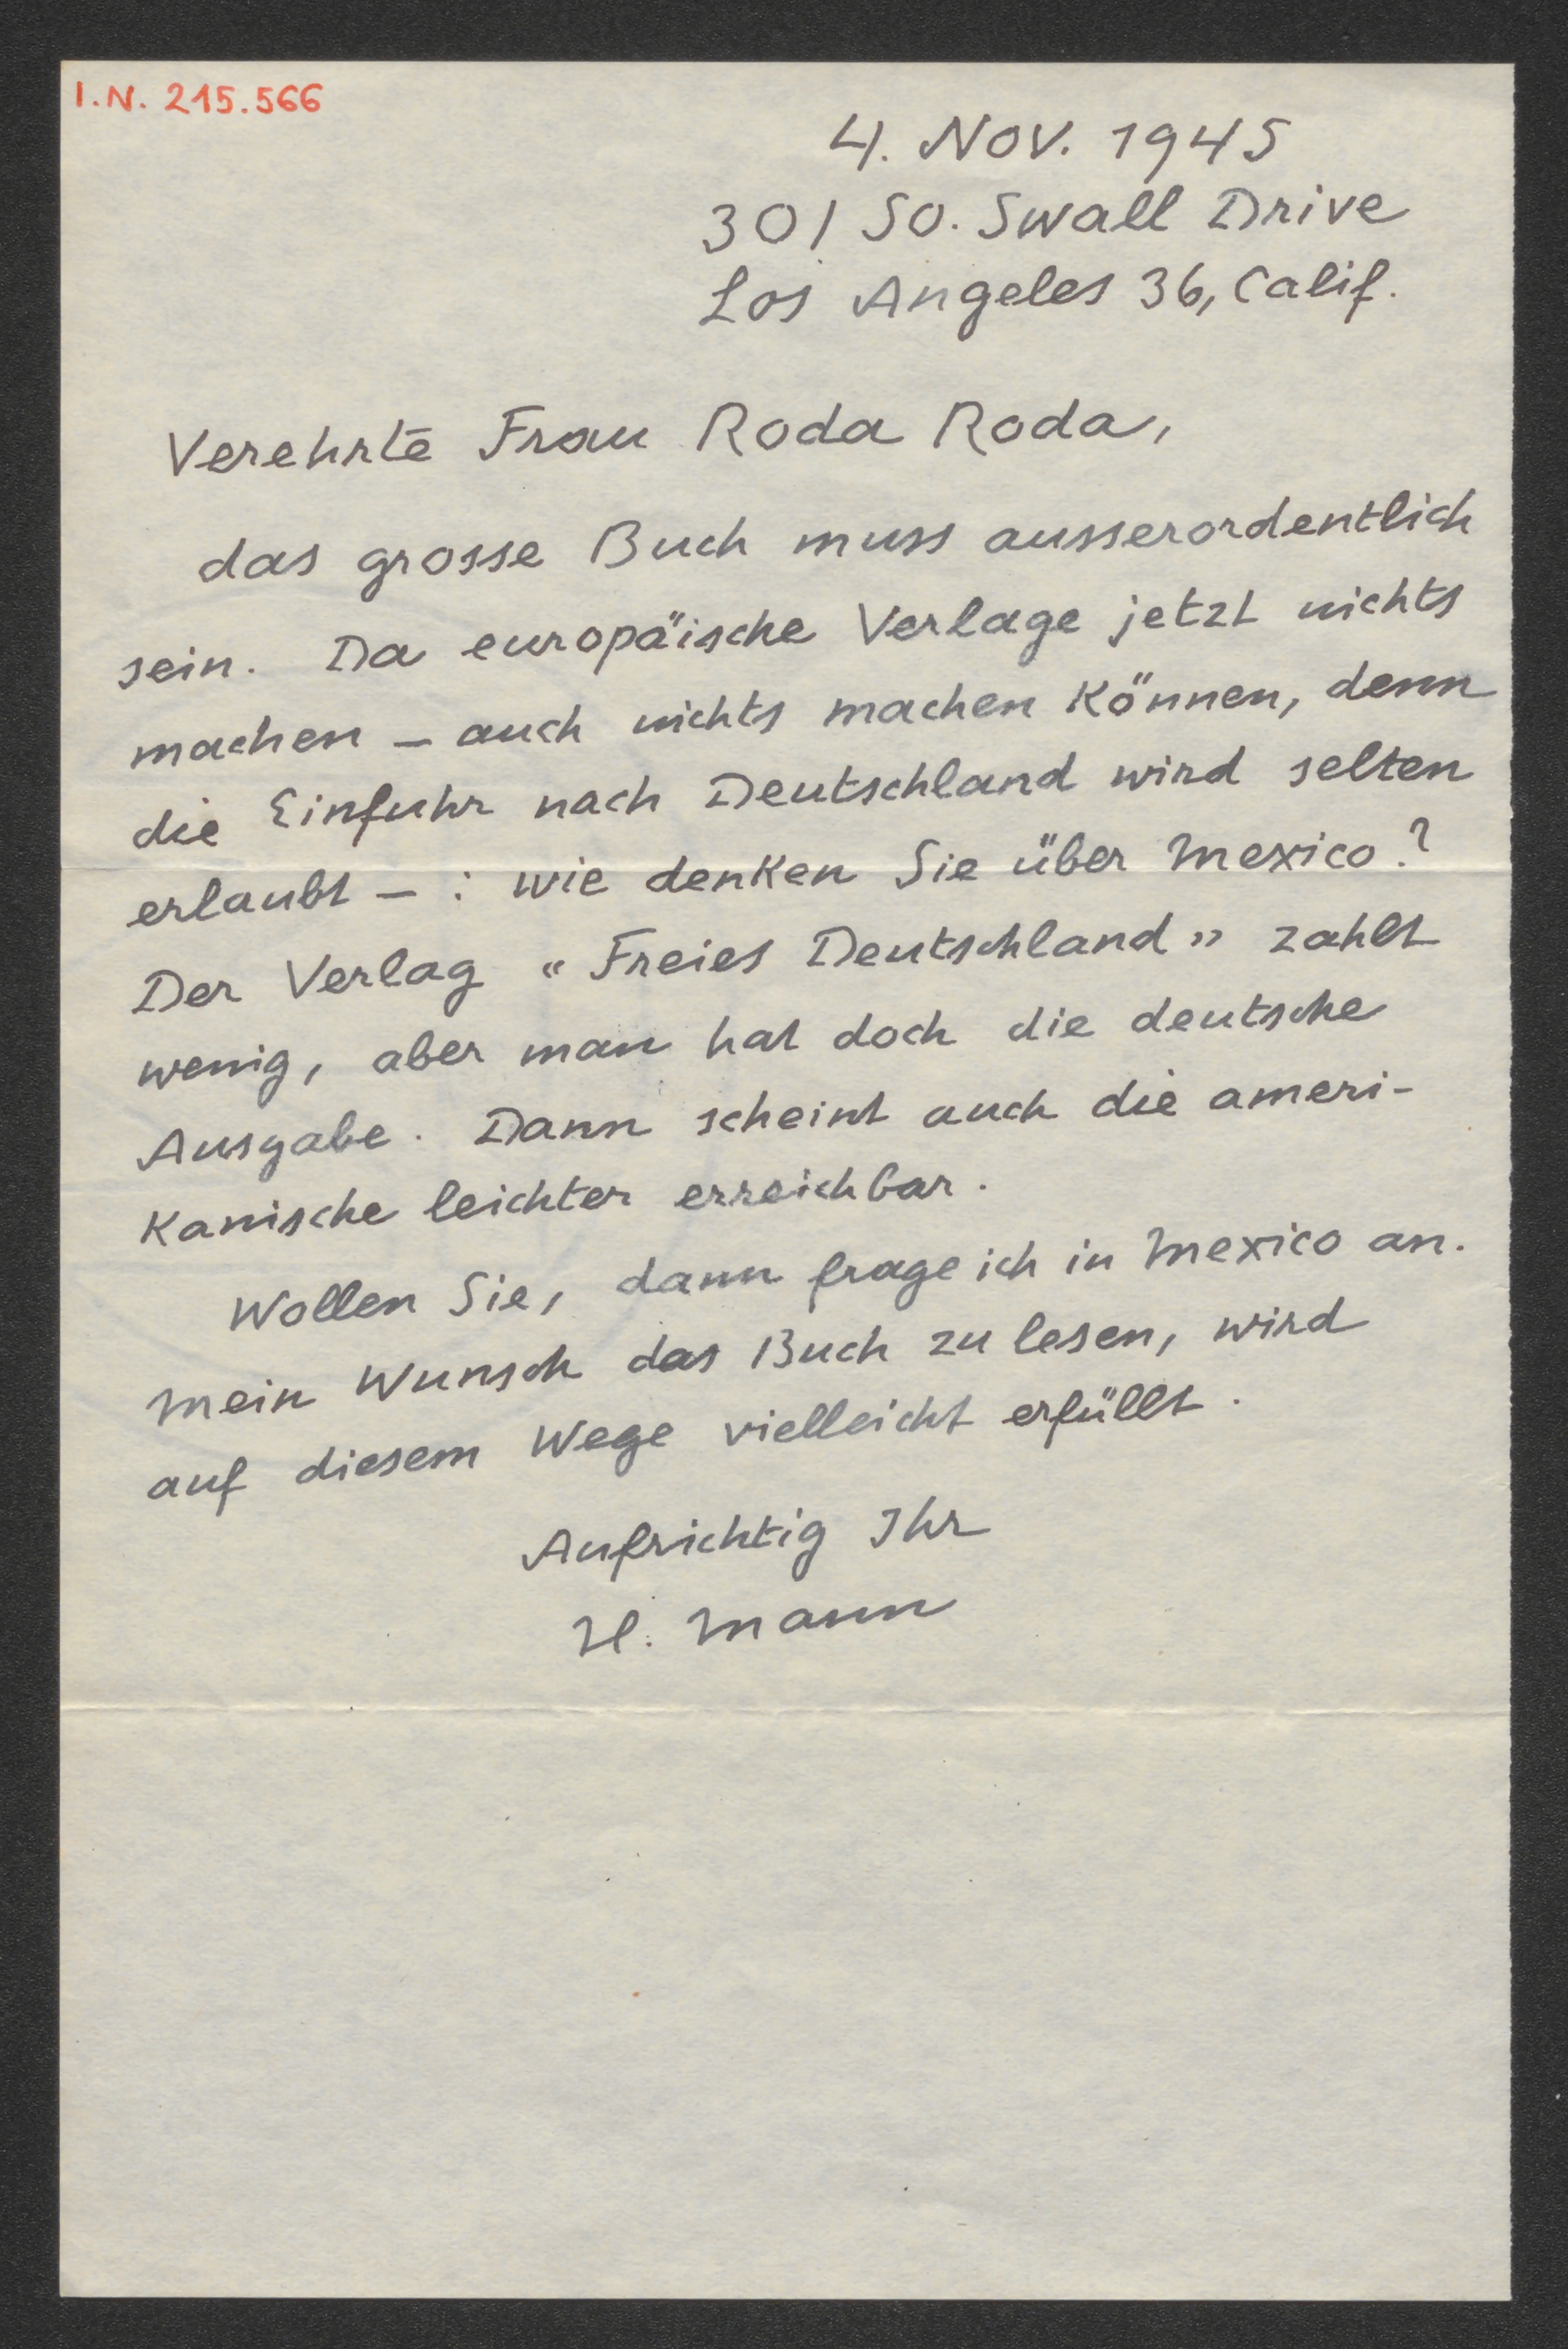 I.N. 215.566
4. Nov. 1945
301 So. Swall Drive
Los Angeles 36, Calif.
Verehrte Frau Roda Roda,
das grosse Buch muss ausserordentlich
sein. Da europäische Verlage jetzt nichts
machen – auch nichts machen können, denn
die Einfuhr nach Deutschland wird selten
erlaubt – : wie denken Sie über Mexico?
Der Verlag « Freies Deutschland » zahlt
wenig, aber man hat doch die deutsche
Ausgabe. Dann scheint auch die ameri-
kanische leichter erreichbar.
Wollen Sie, dann frage ich in Mexico an.
Mein Wunsch das Buch zu lesen, wird
auf diesem Wege vielleicht erfüllt.
Aufrichtig Ihr
H. Mann